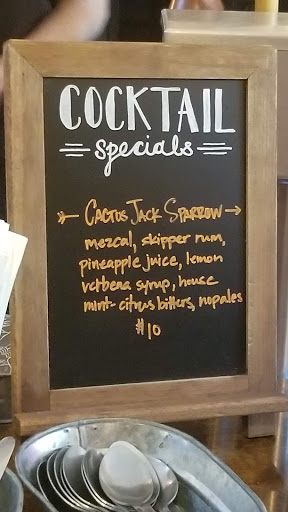 COCKTAIL
specials
CACTUS JACK SPARROW
mezcal, skipper rum,
pineapple juice, lemon
verbena syrup, house
mint-citrus bitters, nopales
$10